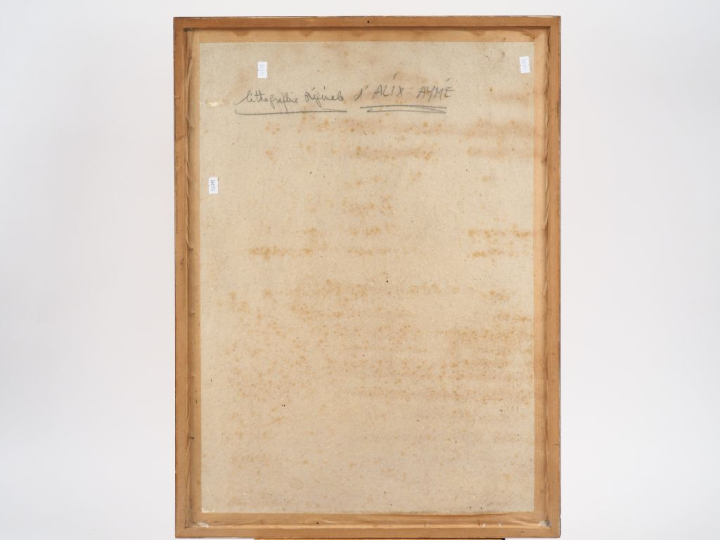 lithographie originale d'ALIX AYMÉ